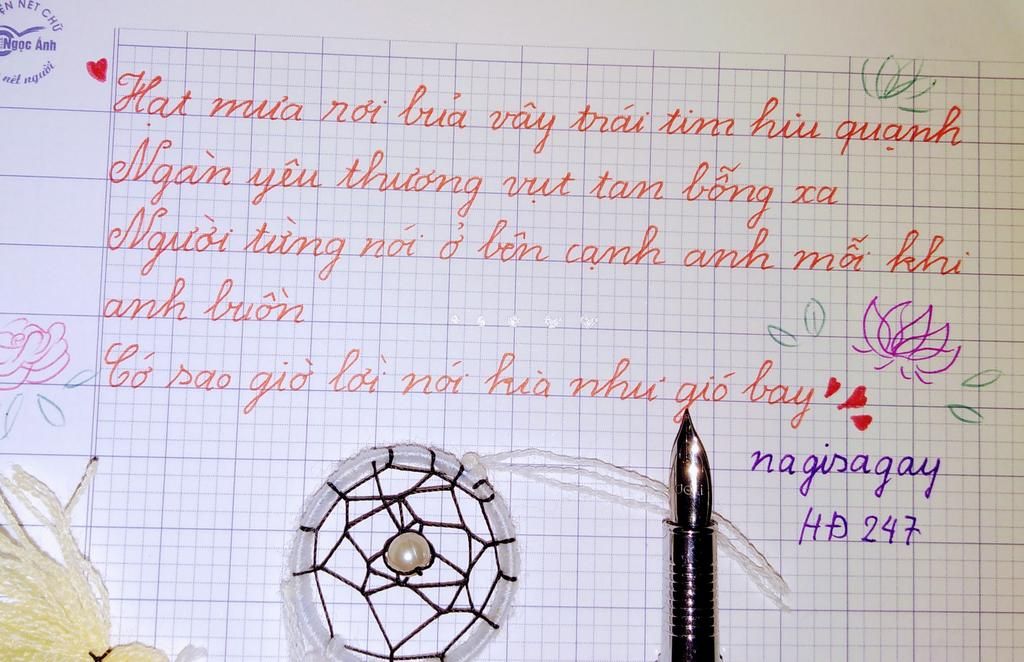 ỆN NÉT CHỮ
Ngọc Ánh
nét người
Hạt mưa rơi bủa vây trái tim hiu quạnh
Ngàn yêu thương vụt tan bỗng xa
Người từng nói ở bên cạnh anh mỗi khi
anh buồn
Cớ sao giờ lời nói kia như gió bay
nagisagay
HĐ 247
deli